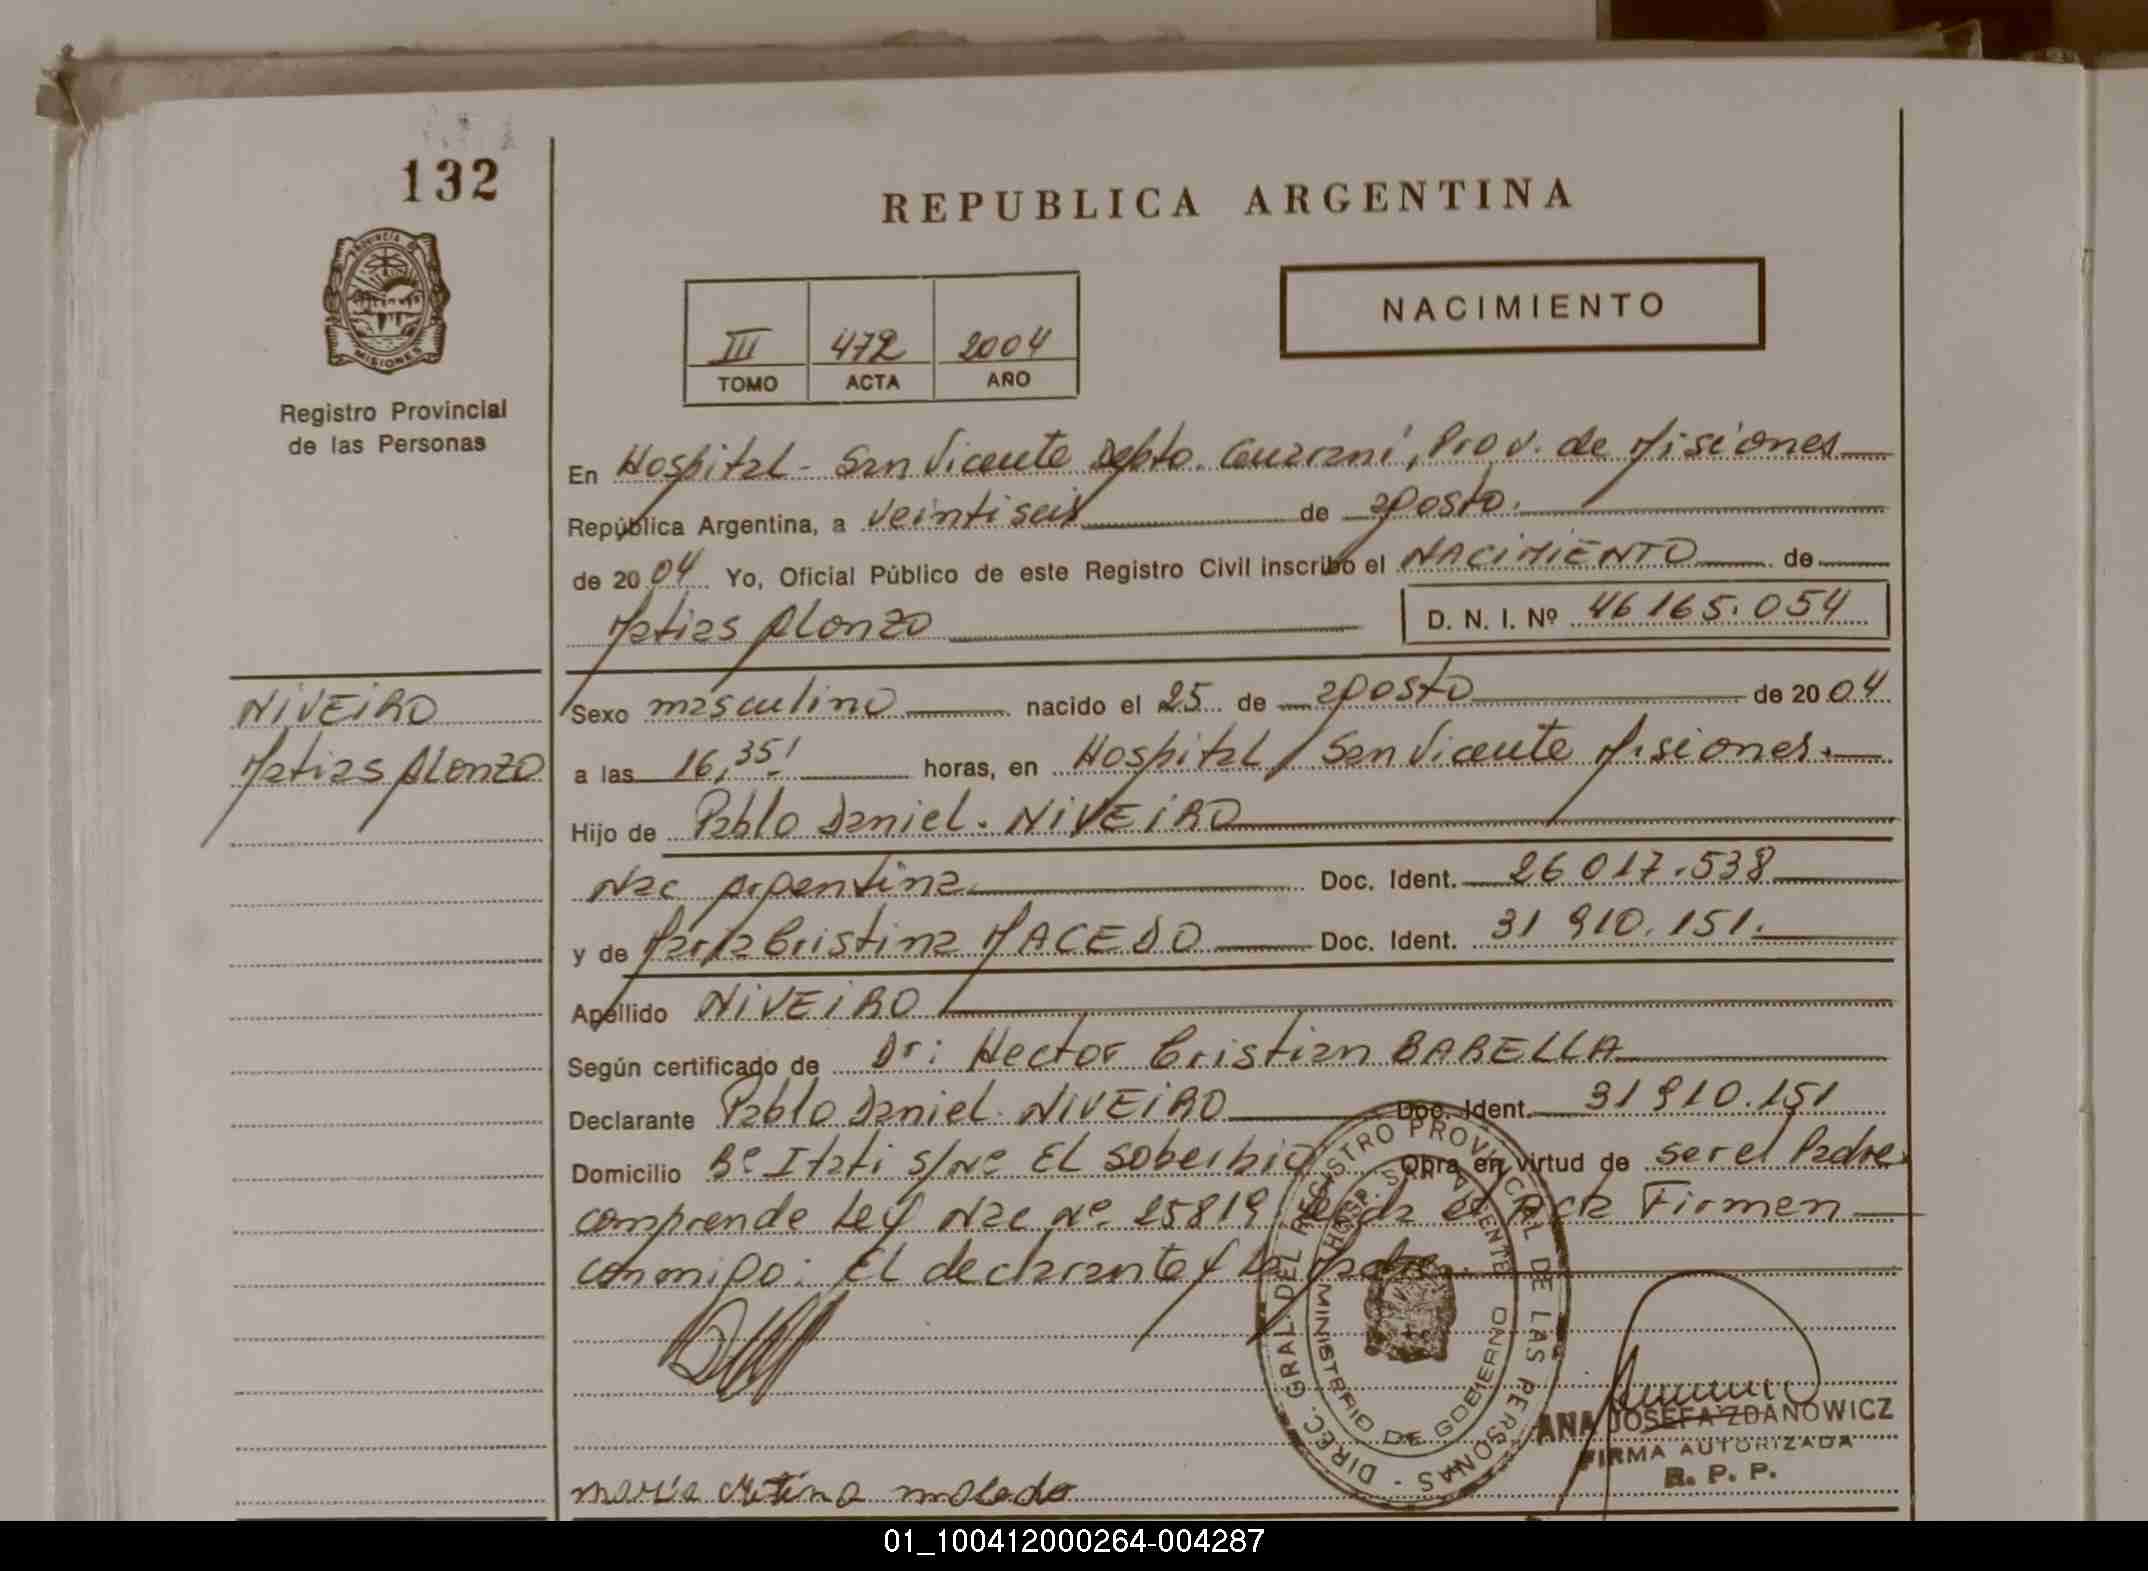 132
REPUBLICA ARGENTINA
PROVINCIA DE MISIONES
Registro Provincial
de las Personas
NACIMIENTO
III 472 2004
TOMO ACTA AÑO
En Hospital - San Vicente Depto. Guarani, Prov. de Misiones
República Argentina, a veintiseis de agosto.
de 2004 Yo, Oficial Público de este Registro Civil inscribo el NACIMIENTO de
Matias Alonzo D. N. I. Nº 46165.054
NIVEIRO
Matias Alonzo
Sexo masculino nacido el 25 de agosto de 2004
a las 16,35' horas, en Hospital San Vicente Misiones.
Hijo de Pablo Daniel. NIVEIRO
Nac Argentina. Doc. Ident. 26017.538
y de Maria Cristina MACEDO Doc. Ident. 31 910.151.
Apellido NIVEIRO
Según certificado de Dr: Hector Cristian BARELLA
Declarante Pablo Daniel. NIVEIRO Doc. Ident. 31910.151
Domicilio Bº Itati s/nº El Soberbio Obra en virtud de ser el Padre.
comprende Ley Nac Nº 25819 Leida el Acta Firman
conmigo: El declarante y la Madre.
DIREC. GRAL. DEL REGISTRO PROVINCIAL DE LAS PERSONAS -
HOSP. SAN VICENTE
MINISTERIO DE GOBIERNO
ANA JOSEFA ZDANOWICZ
FIRMA AUTORIZADA
R. P. P.
maria cristina macedo
01_100412000264-004287